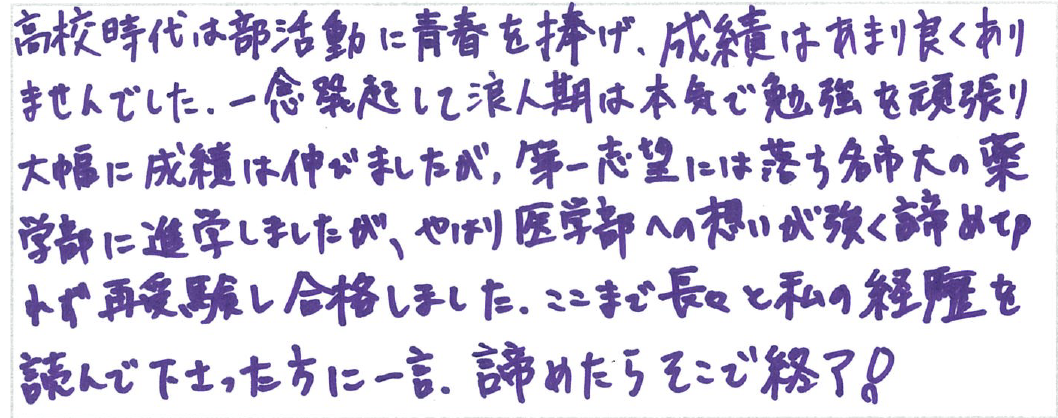 高校時代は部活動に青春を捧げ、成績はあまり良くあり
ませんでした。一念発起して浪人期は本気で勉強を頑張り
大幅に成績は伸びましたが、第一志望には落ち名市大の薬
学部に進学しましたが、やはり医学部への想いが強く諦めせ
れず再受験し合格しました。ここまで長々と私の経歴を
読んで下さった方に一言。諦めたらそこで終了!